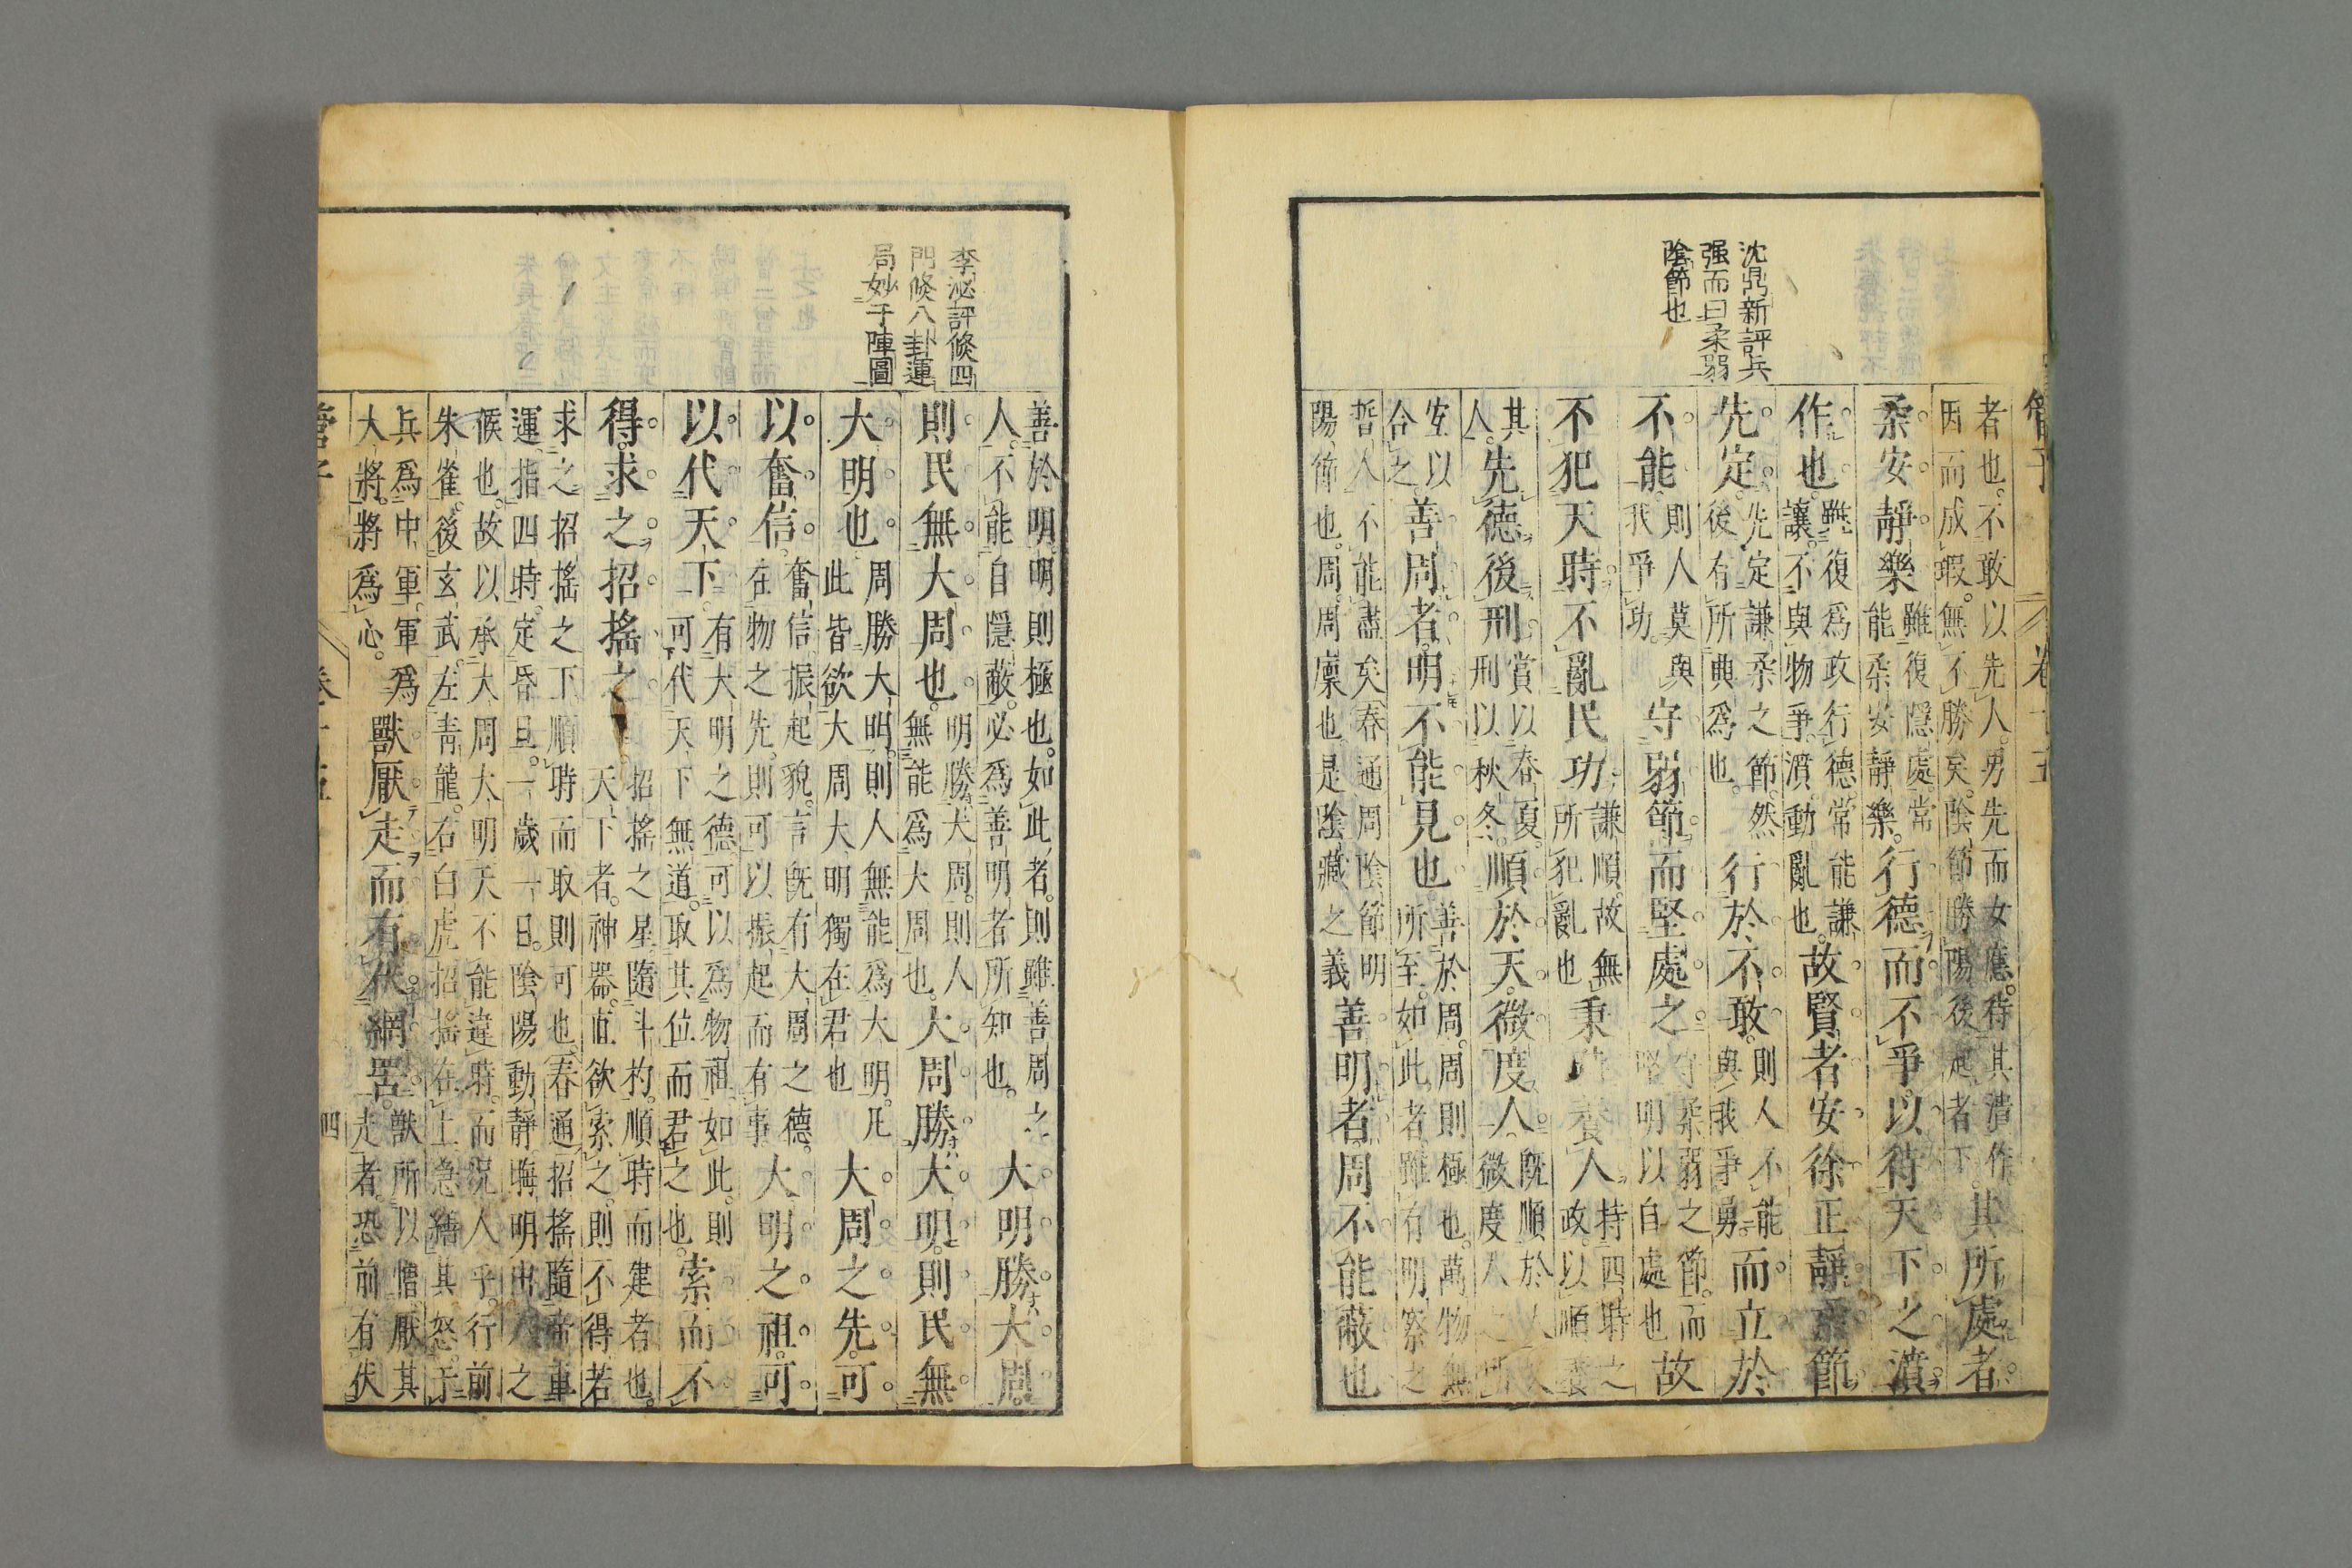 管子 卷十五
沈鼎新評兵
强而曰柔弱
陰節也
者也。不敢以先人。男先而女應。待其潰作
因而成瑕。無不勝矣。陰節勝陽後起者下。其所處者。
柔安靜樂 雖復隱處。常
能柔安靜樂。行德而不爭。以待天下之濆
作也。雖復爲政行德。常能謙
讓。不與物爭。濆動亂也。故賢者安徐正靜。柔節
先定。先定謙柔之節。然
後有所興爲也。行於不敢。則人不能
與我爭勇。而立於
不能。則人莫與
我爭功。守弱節而堅處之。守柔弱之節。而
堅明以自處也 故
不犯天時。不亂民功。謙順。故無
所犯亂也 秉時養人。持四時之
政。以順養
其
人。先德後刑。賞以春夏。
刑以秋冬。順於天。微度人。既順於
微度人之所
宜。以
合之。善周者。明不能見也。善於周。周則極也。萬物無
所至。如此者。雖有明察之
哲人。不能盡矣。春通周陰節明
陽節也。周。周廩也。是陰藏之義 善明者。周不能蔽也
李泌評倏四
門倏八卦運
局妙于陣圖
善於明。明則極也。如此者。則雖善周之
人。不能自隱蔽。必爲善明者所知也。大明勝大周。
則民無大周也。明勝大周。則人
無能爲大周也。大周勝大明。則民無
大明也。周勝大明。則人無能爲大明。凡
此皆欲大周大明獨在君也 大周之先。可
以奮信。奮信振起貌。言既有大周之德。
在物之先。則可以振起而有事 大明之祖。可
以代天下。有大明之德。可以爲物祖。如此。則
可代天下無道。取其位而君之也。索而不
得。求之招搖之 招搖之星。隨斗杓。順時而建者也。
天下者。神器。直欲索之。則不得。若
求之招搖之下。順時而取。則可也。春通招搖隨帝車
運。指四時。定昏旦。一歲一日。陰陽動靜。晦明出入之
候也。故以承大周大明。天不能違時。而況人乎。行前
朱雀。後玄武。左青龍。右白虎。招搖在上。急繕其怒。于
兵爲中軍。軍爲
大將。將爲心。獸厭走而有伏網罟。獸所以憎厭其
走者。恐前有伏
管子 卷十五 四